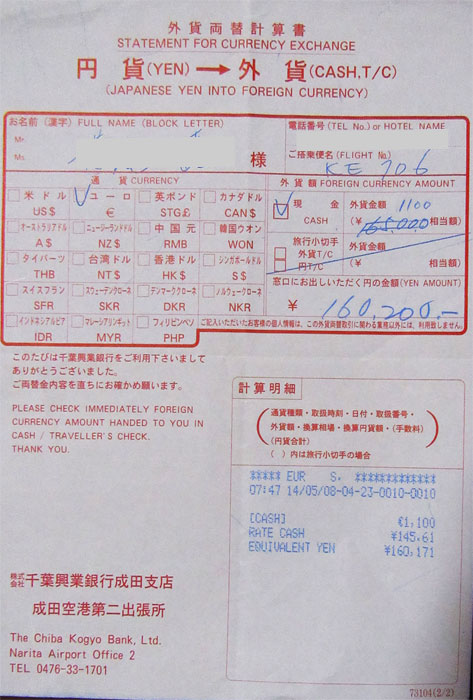 外貨両替計算書
STATEMENT FOR CURRENCY EXCHANGE
円貨(YEN)→外貨(CASH,T/C)
(JAPANESE YEN INTO FOREIGN CURRENCY)
お名前 (漢字) FULL NAME (BLOCK LETTER)
Mr.
Ms.
様
電話番号 (TEL No.) or HOTEL NAME
ご搭乗便名 (FLIGHT No.)
KE 706
通貨 CURRENCY
米ドル ユーロ 英ポンド カナダドル
US$ € STG£ CAN$
オーストラリアドル ニュージーランドドル 中国元 韓国ウオン
A$ NZ$ RMB WON
タイバーツ 台湾ドル 香港ドル シンガポールドル
THB NT$ HK$ S$
スイスフラン スウェーデンクローネ デンマーククローネ ノルウェークローネ
SFR SKR DKR NKR
インドネシアルピア マレーシアリンギット フィリピンペソ
IDR MYR PHP
外貨額 FOREIGN CURRENCY AMOUNT
現金 外貨金額 1100
CASH (¥ 165,000 相当額)
旅行小切手 外貨金額
外貨T/C (¥ 相当額)
円T/C
窓口にお出しいただく円の金額(YEN AMOUNT)
¥ 160,200.-
ご記入いただいたお客様の個人情報は、この外貨両替取引に関わる業務以外には、利用致しません。
このたびは千葉興業銀行をご利用下さいまして
ありがとうございました。
ご両替金内容を直ちにお確かめ願います。
PLEASE CHECK IMMEDIATELY FOREIGN
CURRENCY AMOUNT HANDED TO YOU IN
CASH / TRAVELLER'S CHECK.
THANK YOU.
計算明細
(通貨種類・取扱時刻・日付・取扱番号・
外貨額・換算相場・換算円貨額・(手数料)
(円貨合計)
( ) 内は旅行小切手の場合)
***** EUR S. *************
07:47 14/05/08-04-23-0010-0010
[CASH] €1,100
RATE CASH ¥145.61
EQUIVALENT YEN ¥160,171
株式会社 千葉興業銀行成田支店
成田空港第二出張所
The Chiba Kogyo Bank, Ltd.
Narita Airport Office 2
TEL 0476-33-1701
73104(2/2)